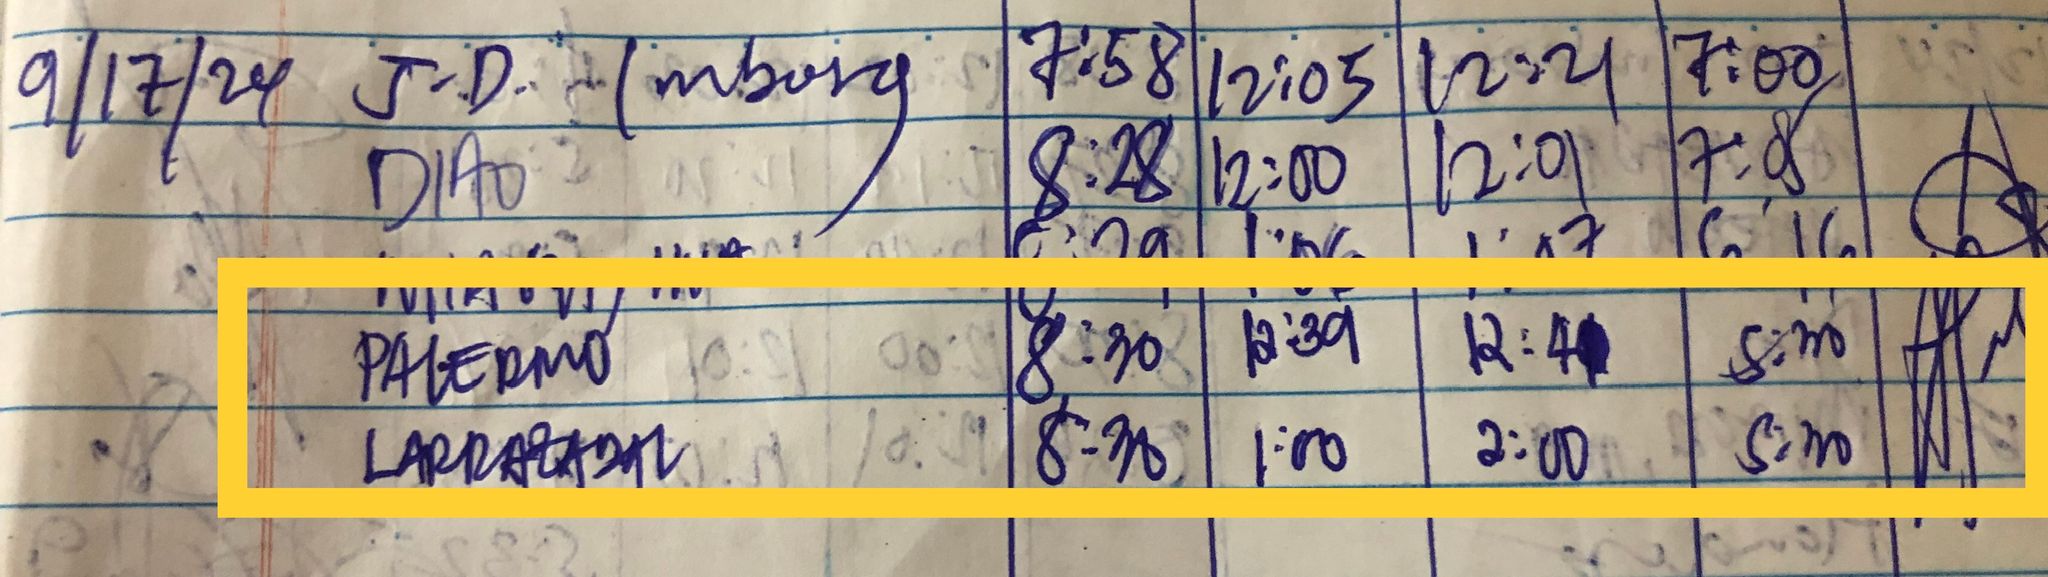 9/17/24 J-D. 7:58 12:05 12:21 7:00
DIAO 8:28 12:00 12:01 7:08
PALERMO 8:30 12:39 12:41 5:30
LARRAZABAL 8:30 1:00 2:00 5:30